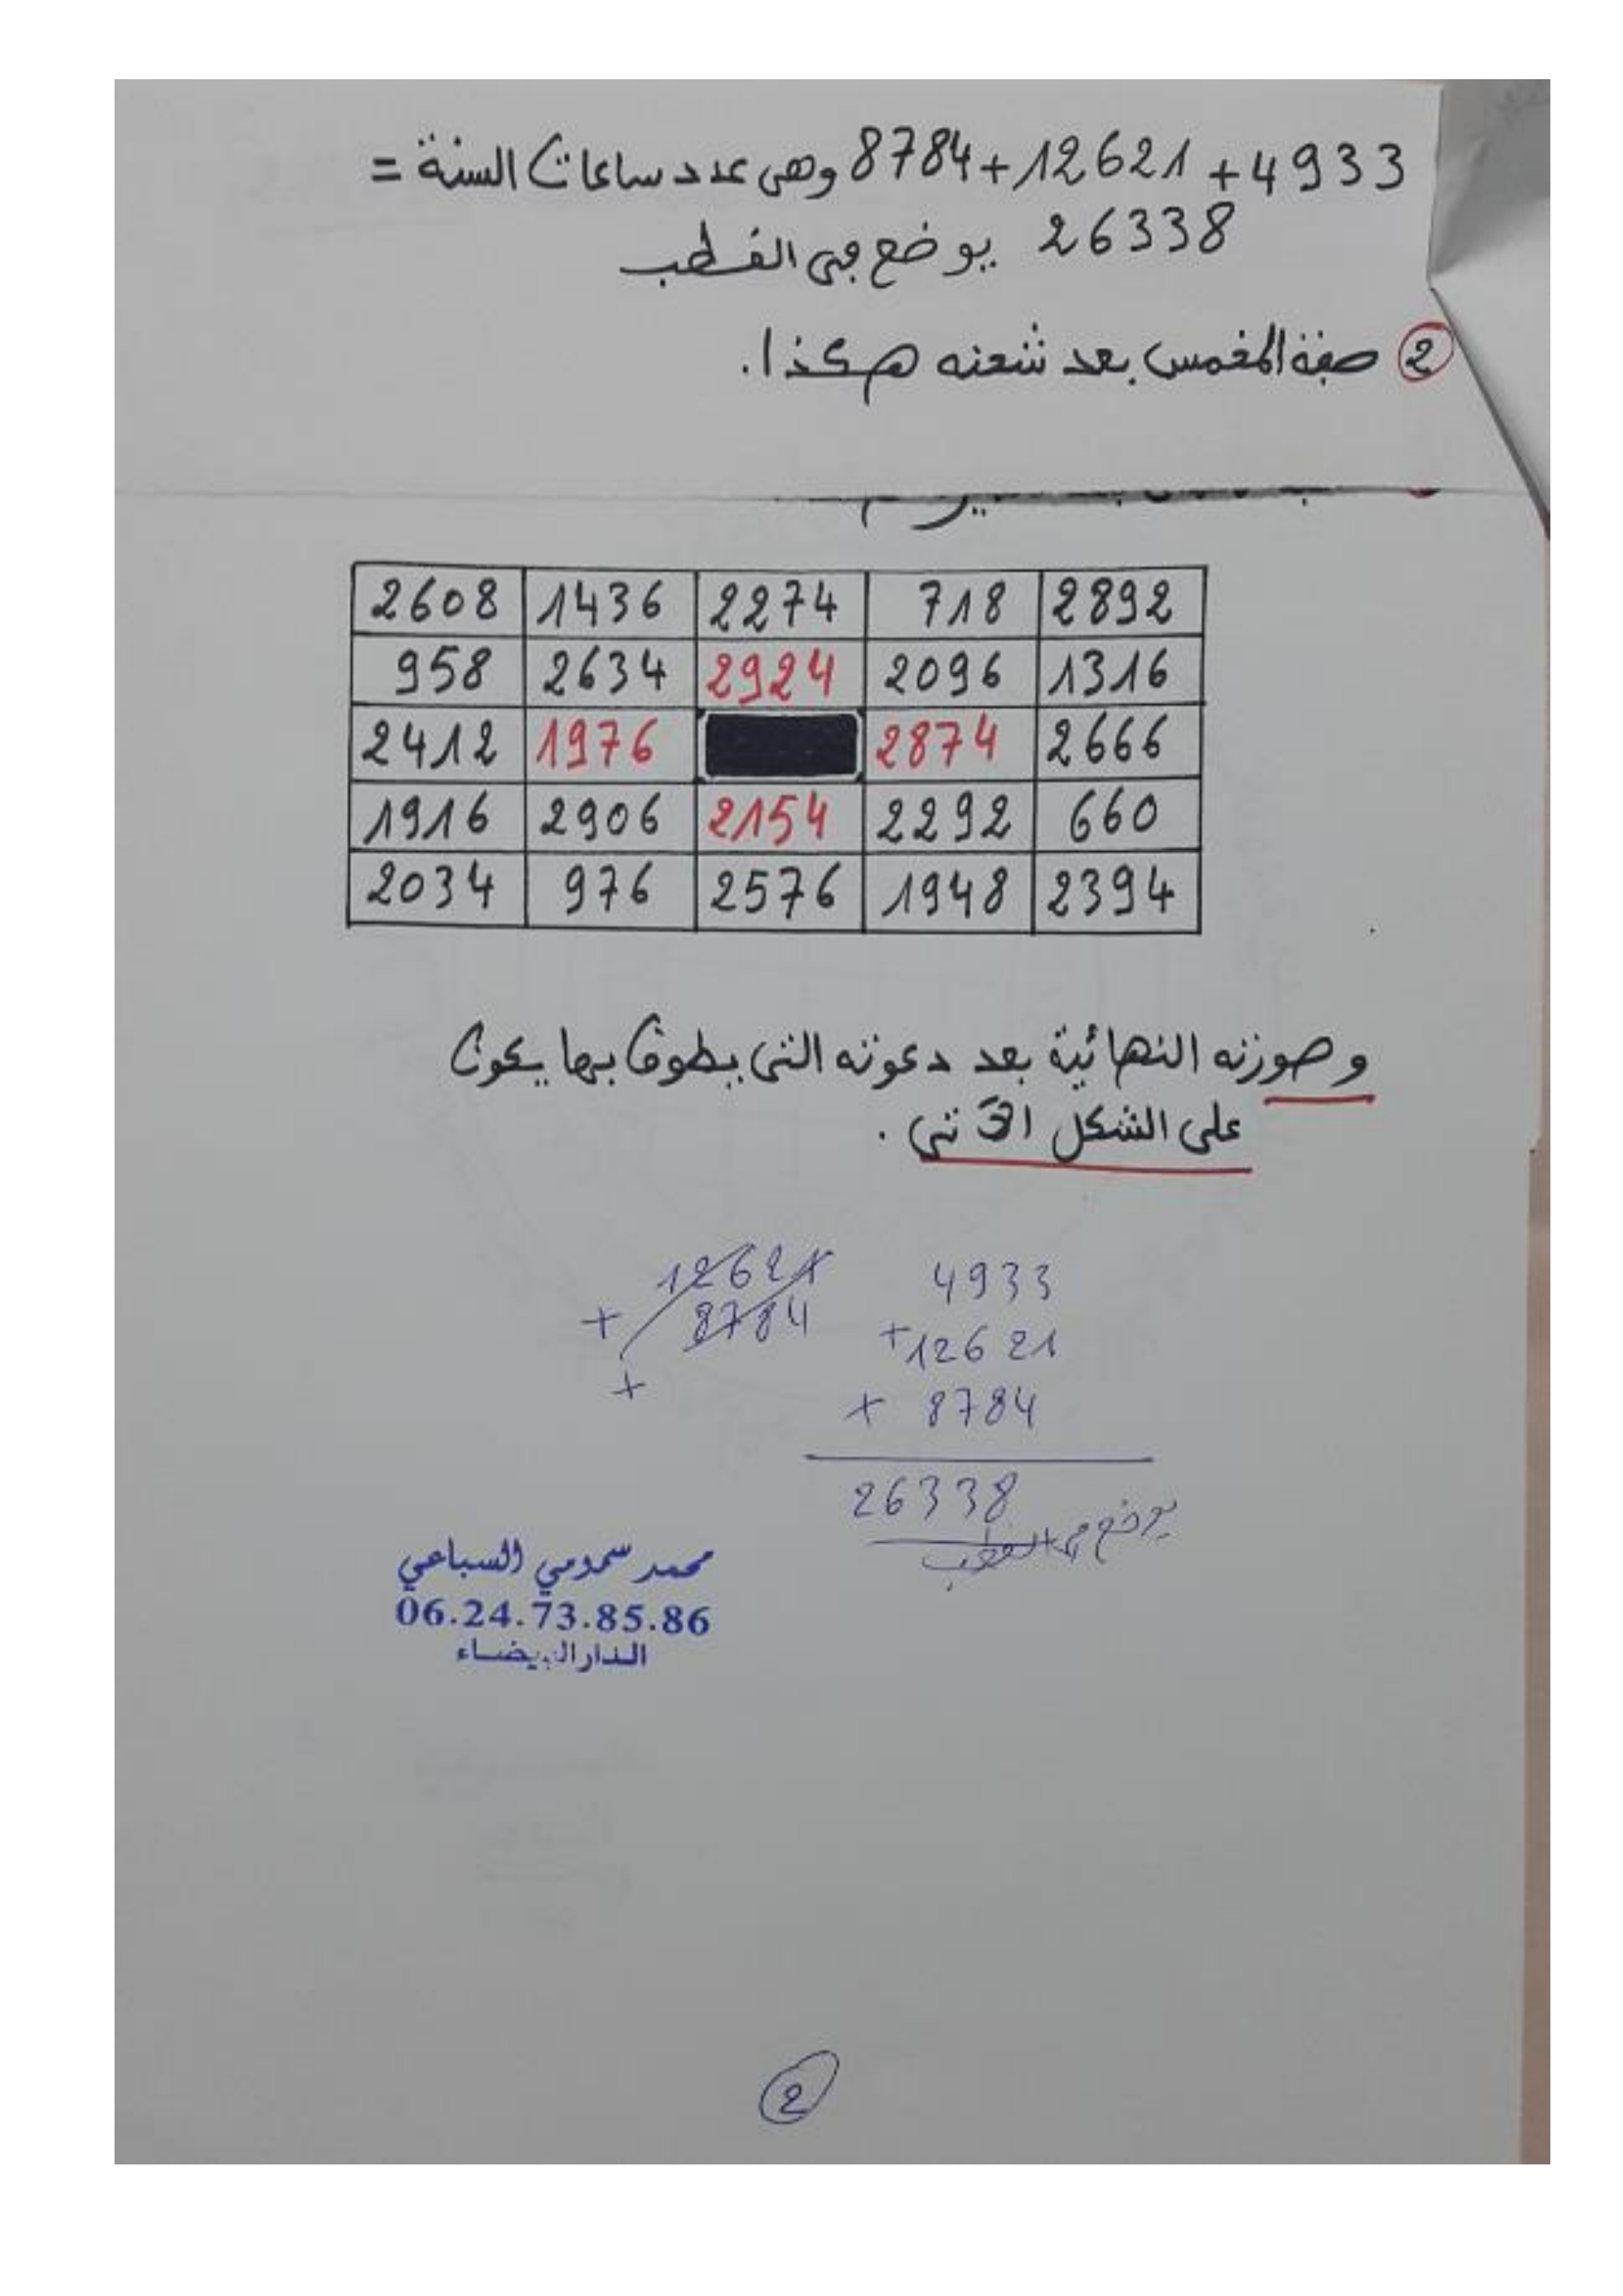 4933 + 12621 + 8784 وهي عدد ساعات السنة =
26338 يوضع في القطب
② صفة المخمس بعد شحنه هكذا.
2608 1436 2274 718 2892
958 2634 2924 2096 1316
2412 1976 2874 2666
1916 2906 2154 2292 660
2034 976 2576 1948 2394
وصورته النهائية بعد دعوته التي يطوق بها يكون
على الشكل الآتي.
12621
+ 8784
+
4933
+12621
+ 8784
26338
يوضع في القطب
محمد سمومي السباعي
06.24.73.85.86
الدار البيضاء
2